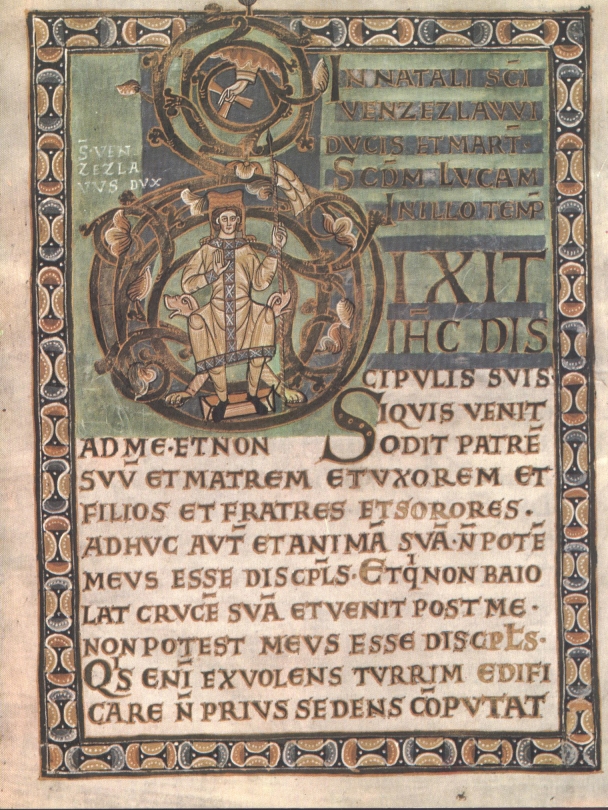 IN NATALI SCI
VENZEZLAVVI
DVCIS ET MART̄.
SCD̄M LVCAM
IN ILLO TEMP̄
S̄ VEN
ZEZLA
VVS DVX
DIXIT
IH̄C DIS
CIPVLIS SVIS
SIQVIS VENIT
AD ME·ET NON ODIT PATRĒ
SVV̄ ET MATREM ET VXOREM ET
FILIOS ET FRATRES ET SORORES.
ADHVC AVT̄ ET ANIMĀ SVĀ·N̄ POTĒ
MEVS ESSE DISCPL̄S·ET Qͥ NON BAIO
LAT CRVCĒ SVĀ ET VENIT POST ME·
NON POTEST MEVS ESSE DISCPL̄S·
QͥS ENĪ EX VOLENS TVRRIM EDIFI
CARE N̄ PRIVS SEDENS CŌPVTAT